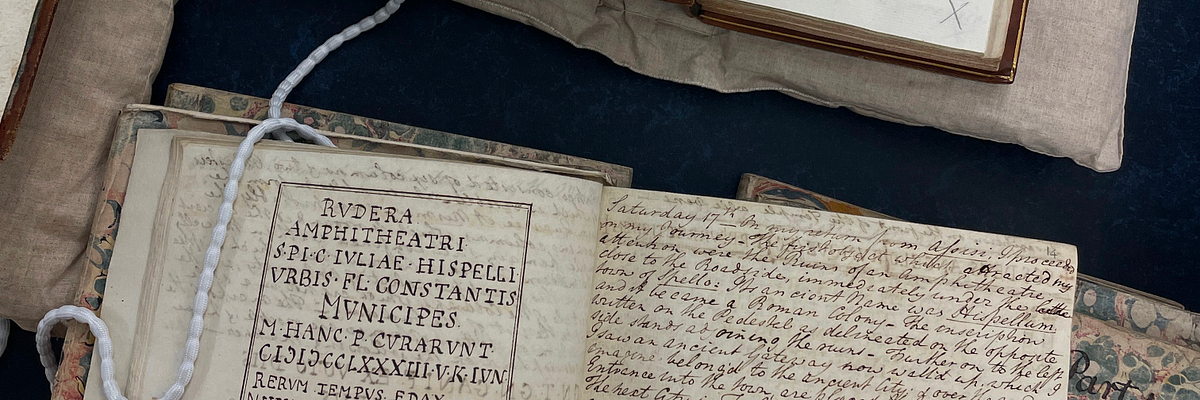 RVDERA
AMPHITHEATRI
S·PI·C·IVLIAE·HISPELLI
VRBIS·FL·CONSTANTIS
MVNICIPES.
M·HANC·P·CVRARVNT
CIƆIƆCCLXXXIII·V·K·IVN
RERVM TEMPUS EDAX
Saturday 17th On my return from Assisi, I proceeded
on my Journey - The first object which attracted my
attention were the Ruins of an Amphitheatre
close to the Roadside immediately under the
town of Spello: Its ancient Name was Hispellum
and it became a Roman Colony - The inscription
written on the Pedestal as delineated on the opposite
side stands adjoining the ruins - Further on to the left
saw an ancient Gateway now walld up, which I
imagine belonged to the ancient City
Entrance into the town, are placed
the next City is
Part
X